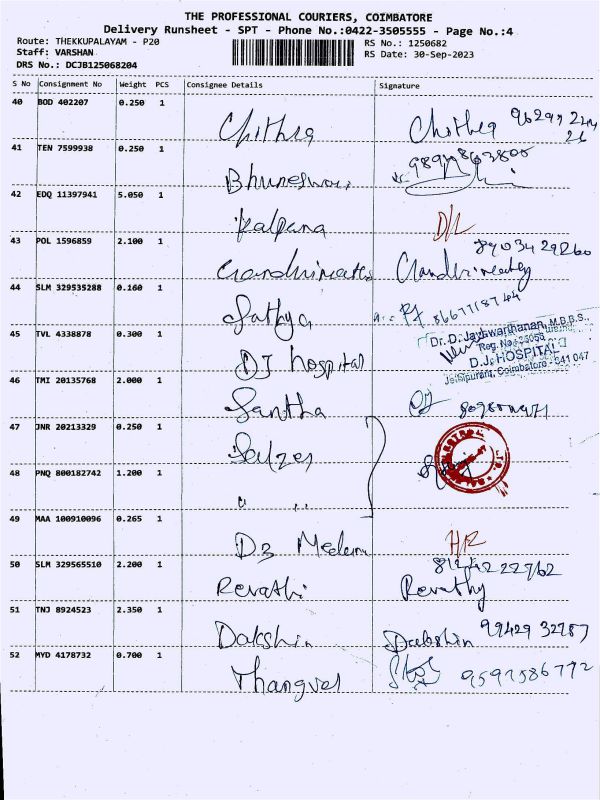 THE PROFESSIONAL COURIERS, COIMBATORE
Delivery Runsheet - SPT - Phone No.:0422-3505555 - Page No.:4
Route: THEKKUPALAYAM - P20
RS No.: 1250682
Staff: VARSHAN
RS Date: 30-Sep-2023
DRS No.: DCJB125068204
S No Consignment No Weight PCS Consignee Details Signature
40 BOD 402207 0.250 1 Chithra Chithra
41 TEN 7599938 0.250 1 Bhuneswari
42 EDQ 11397941 5.050 1 Kalpana D/L
43 POL 1596859 2.100 1 8903429260
44 SLM 329535288 0.160 1 Sathya
45 TVL 4338878 0.300 1 DJ hospital
Dr. D. Jayhwarthanan, M.B.B.S.,
Reg. No:
D.J. HOSPITAL
Coimbatore - 641 047
46 TMI 20135768 2.000 1 Santha
47 JNR 20213329 0.250 1 Salzer
48 PNQ 800182742 1.200 1 " "
49 MAA 100910096 0.265 1 D3
50 SLM 329565510 2.200 1 Revathi Revathy
51 TNJ 8924523 2.350 1 Dakshin Dakshin
52 MYD 4178732 0.700 1 Thangvel